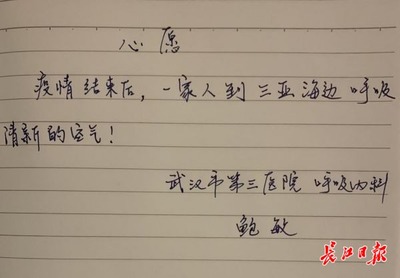 心愿
疫情结束后，一家人到三亚海边呼吸
清新的空气！
武汉市第三医院 呼吸内科
鲍敏
长江日报